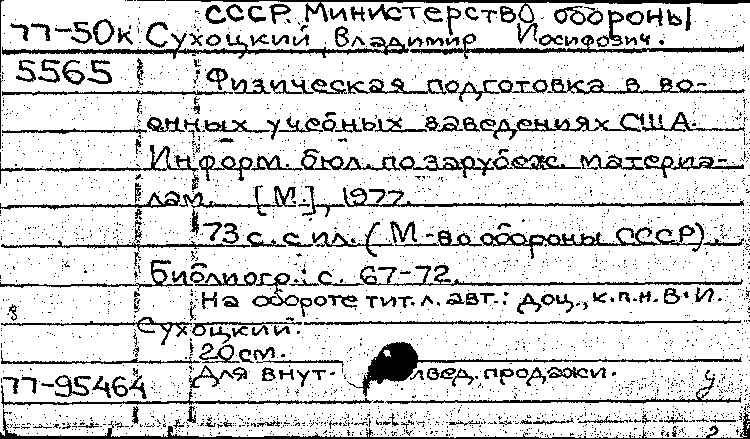 СССР. Министерство обороны
77-50к Сухоцкий, Владимир Иосифович.
5565 Физическая подготовка в во-
енных учебных заведениях США.
Информ. бюл. по зарубеж. материа-
лам. [М.], 1977.
73 с. с ил. (М-во обороны СССР).
Библиогр.: с. 67-72.
На обороте тит. л. авт.: доц., к.п.н. В.И.
Сухоцкий.
20 см.
77-95464 Для внут- вед. продажи.